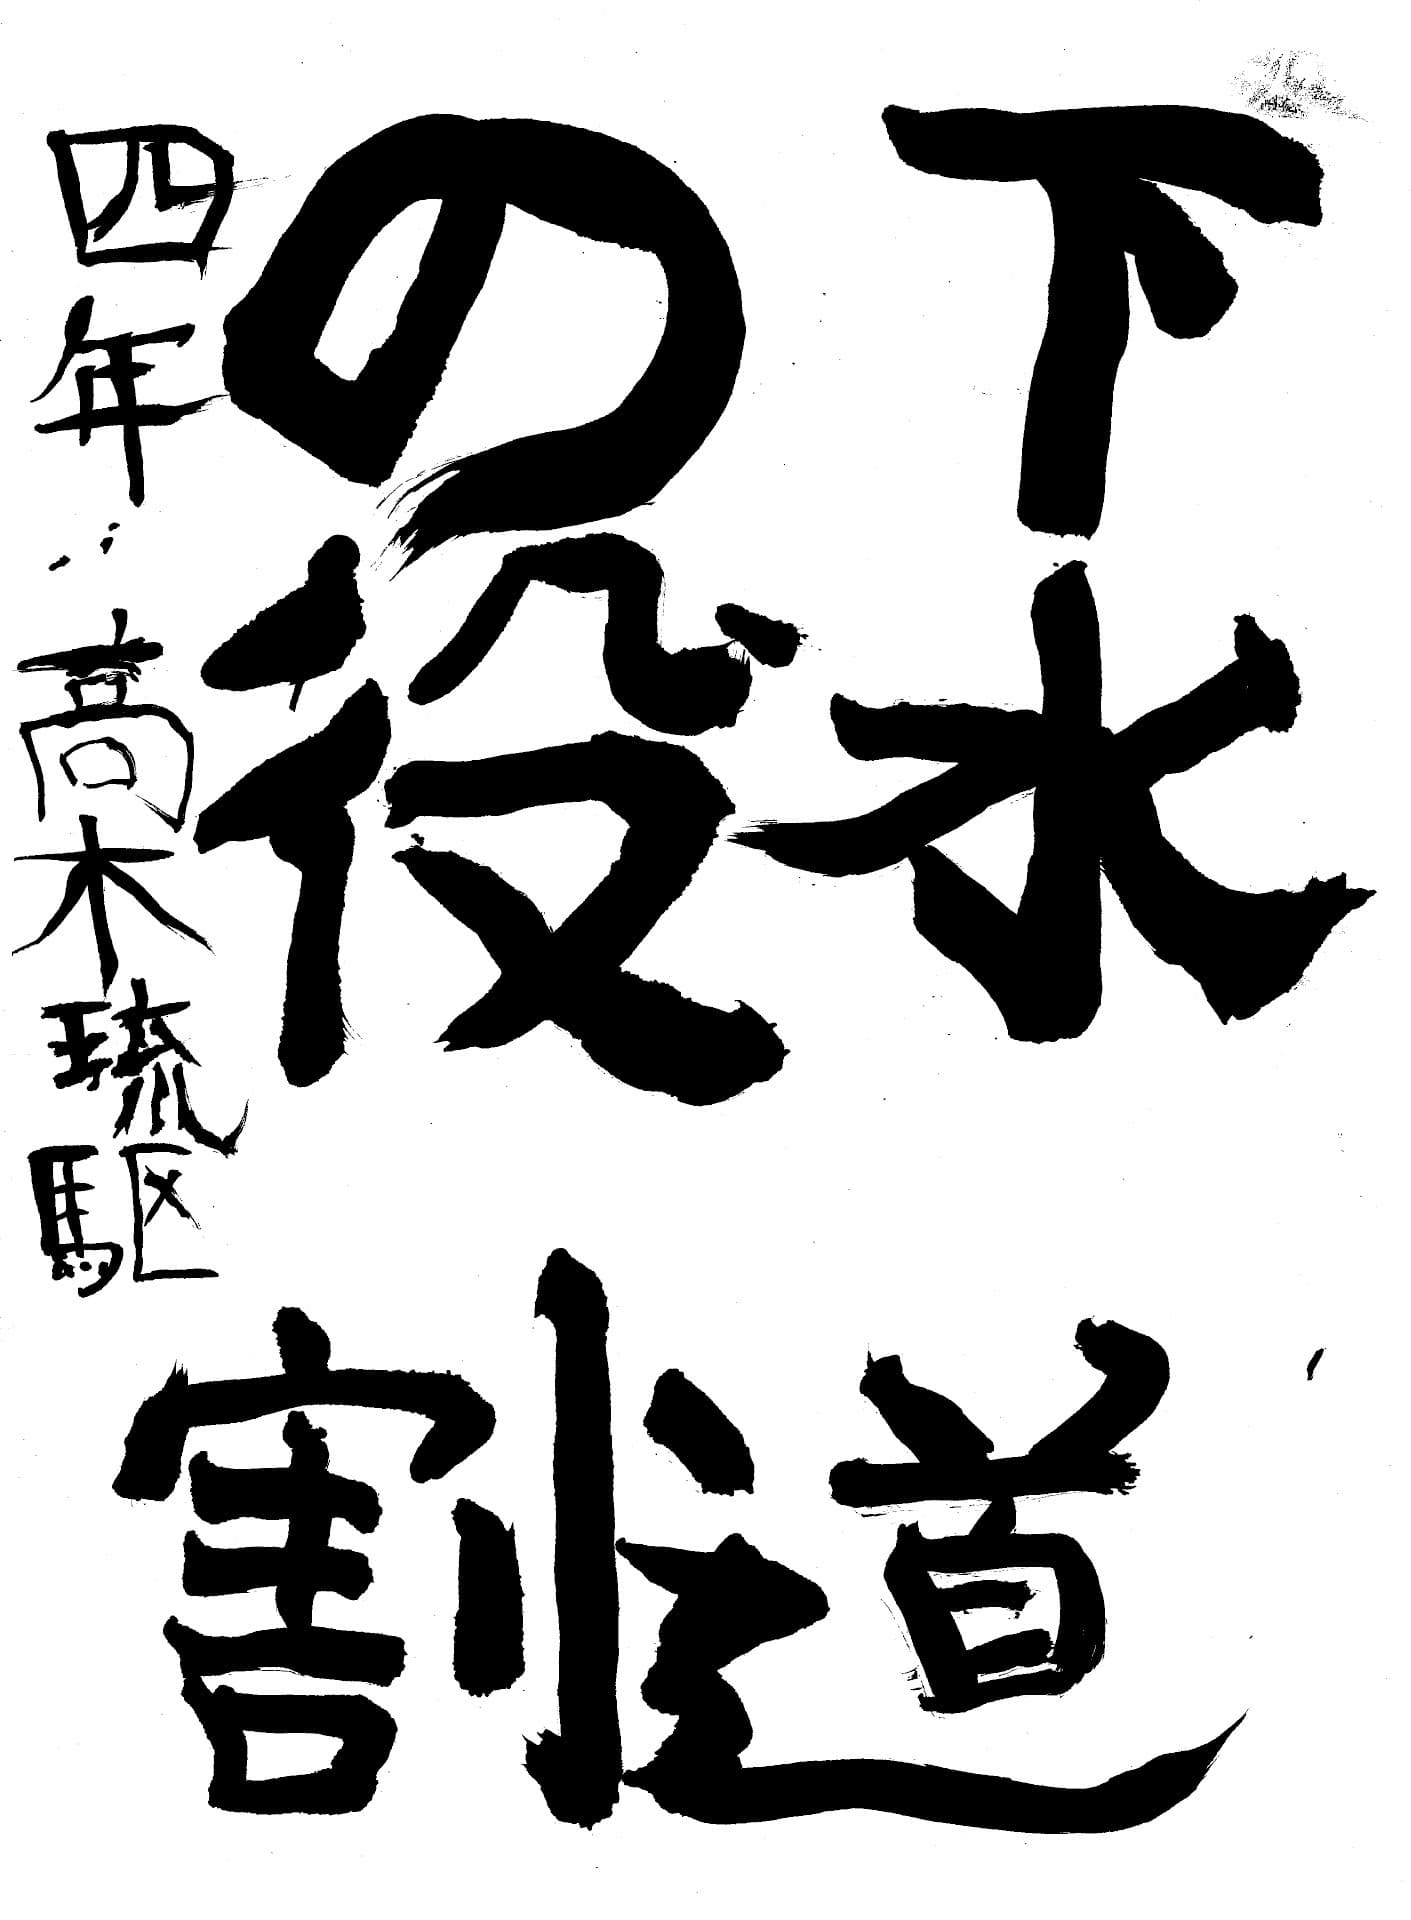 下水道
の役割
四年 高木琉駆